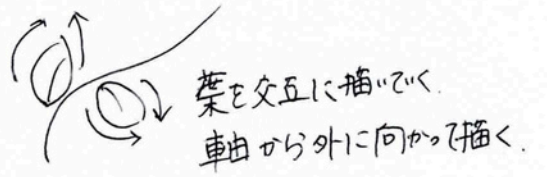 葉を交互に描いでく.
軸から外に向かって描く.